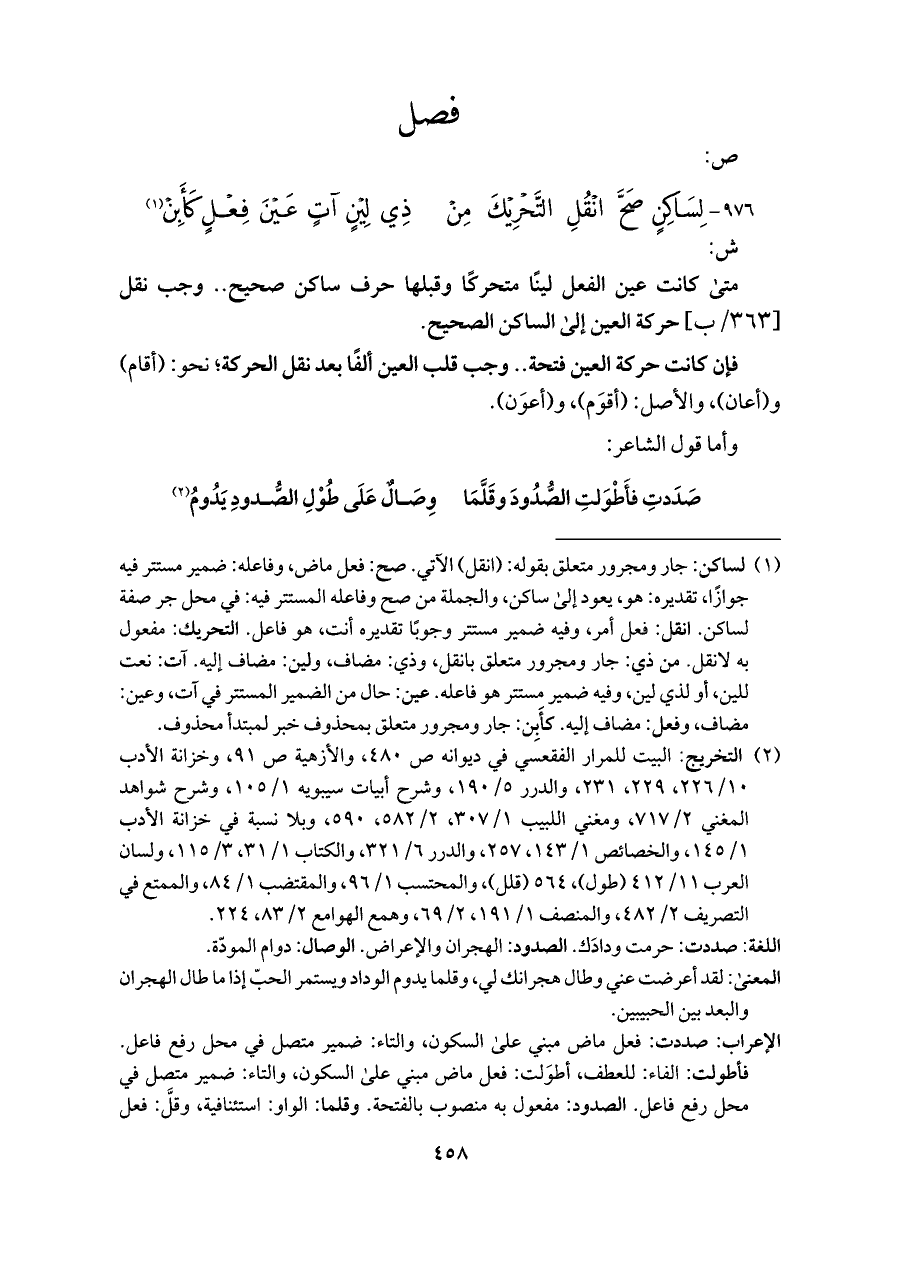 فصل
ص:
٩٧٦- لِسَاكِنٍ صَحَّ انْقُلِ التَّحْرِيْكَ مِنْ ذِي لِيْنٍ آتٍ عَيْنَ فِعْلٍ كَأَبِنْ(١)
ش:
متىٰ كانت عين الفعل لينًا متحركًا وقبلها حرف ساكن صحيح.. وجب نقل
[٣٦٣/ ب] حركة العين إلىٰ الساكن الصحيح.
فإن كانت حركة العين فتحة.. وجب قلب العين ألفًا بعد نقل الحركة؛ نحو: (أقام)
و(أعان)، والأصل: (أقوَم)، و(أعوَن).
وأما قول الشاعر:
صَدَدتِ فأَطْوَلتِ الصُّدُودَ وقَلَّمَا وِصَـالٌ عَلَى طُوْلِ الصُّـدودِ يَدُومُ(٢)
(١) لساكن: جار ومجرور متعلق بقوله: (انقل) الآتي. صح: فعل ماض، وفاعله: ضمير مستتر فيه
جوازًا، تقديره: هو، يعود إلىٰ ساكن، والجملة من صح وفاعله المستتر فيه: في محل جر صفة
لساكن. انقل: فعل أمر، وفيه ضمير مستتر وجوبًا تقديره أنت، هو فاعل. التحريك: مفعول
به لانقل. من ذي: جار ومجرور متعلق بانقل، وذي: مضاف، ولين: مضاف إليه. آت: نعت
للين، أو لذي لين، وفيه ضمير مستتر هو فاعله. عين: حال من الضمير المستتر في آت، وعين:
مضاف، وفعل: مضاف إليه. كأَبِن: جار ومجرور متعلق بمحذوف خبر لمبتدأ محذوف.
(٢) التخريج: البيت للمرار الفقعسي في ديوانه ص ٤٨٠، والأزهية ص ٩١، وخزانة الأدب
١٠/ ٢٢٦، ٢٢٩، ٢٣١، والدرر ٥/ ١٩٠، وشرح أبيات سيبويه ١/ ١٠٥، وشرح شواهد
المغني ٢/ ٧١٧، ومغني اللبيب ١/ ٣٠٧، ٢/ ٥٨٢، ٥٩٠، وبلا نسبة في خزانة الأدب
١/ ١٤٥، والخصائص ١/ ١٤٣، ٢٥٧، والدرر ٦/ ٣٢١، والكتاب ١/ ٣١، ٣/ ١١٥، ولسان
العرب ١١/ ٤١٢ (طول)، ٥٦٤ (قلل)، والمحتسب ١/ ٩٦، والمقتضب ١/ ٨٤، والممتع في
التصريف ٢/ ٤٨٢، والمنصف ١/ ١٩١، ٢/ ٦٩، وهمع الهوامع ٢/ ٨٣، ٢٢٤.
اللغة: صددت: حرمت ودادَك. الصدود: الهجران والإعراض. الوصال: دوام المودّة.
المعنىٰ: لقد أعرضت عني وطال هجرانك لي، وقلما يدوم الوداد ويستمر الحبّ إذا ما طال الهجران
والبعد بين الحبيبين.
الإعراب: صددت: فعل ماض مبني علىٰ السكون، والتاء: ضمير متصل في محل رفع فاعل.
فأطولت: الفاء: للعطف، أطوَلت: فعل ماض مبني علىٰ السكون، والتاء: ضمير متصل في
محل رفع فاعل. الصدود: مفعول به منصوب بالفتحة. وقلما: الواو: استئنافية، وقلَّ: فعل
٤٥٨